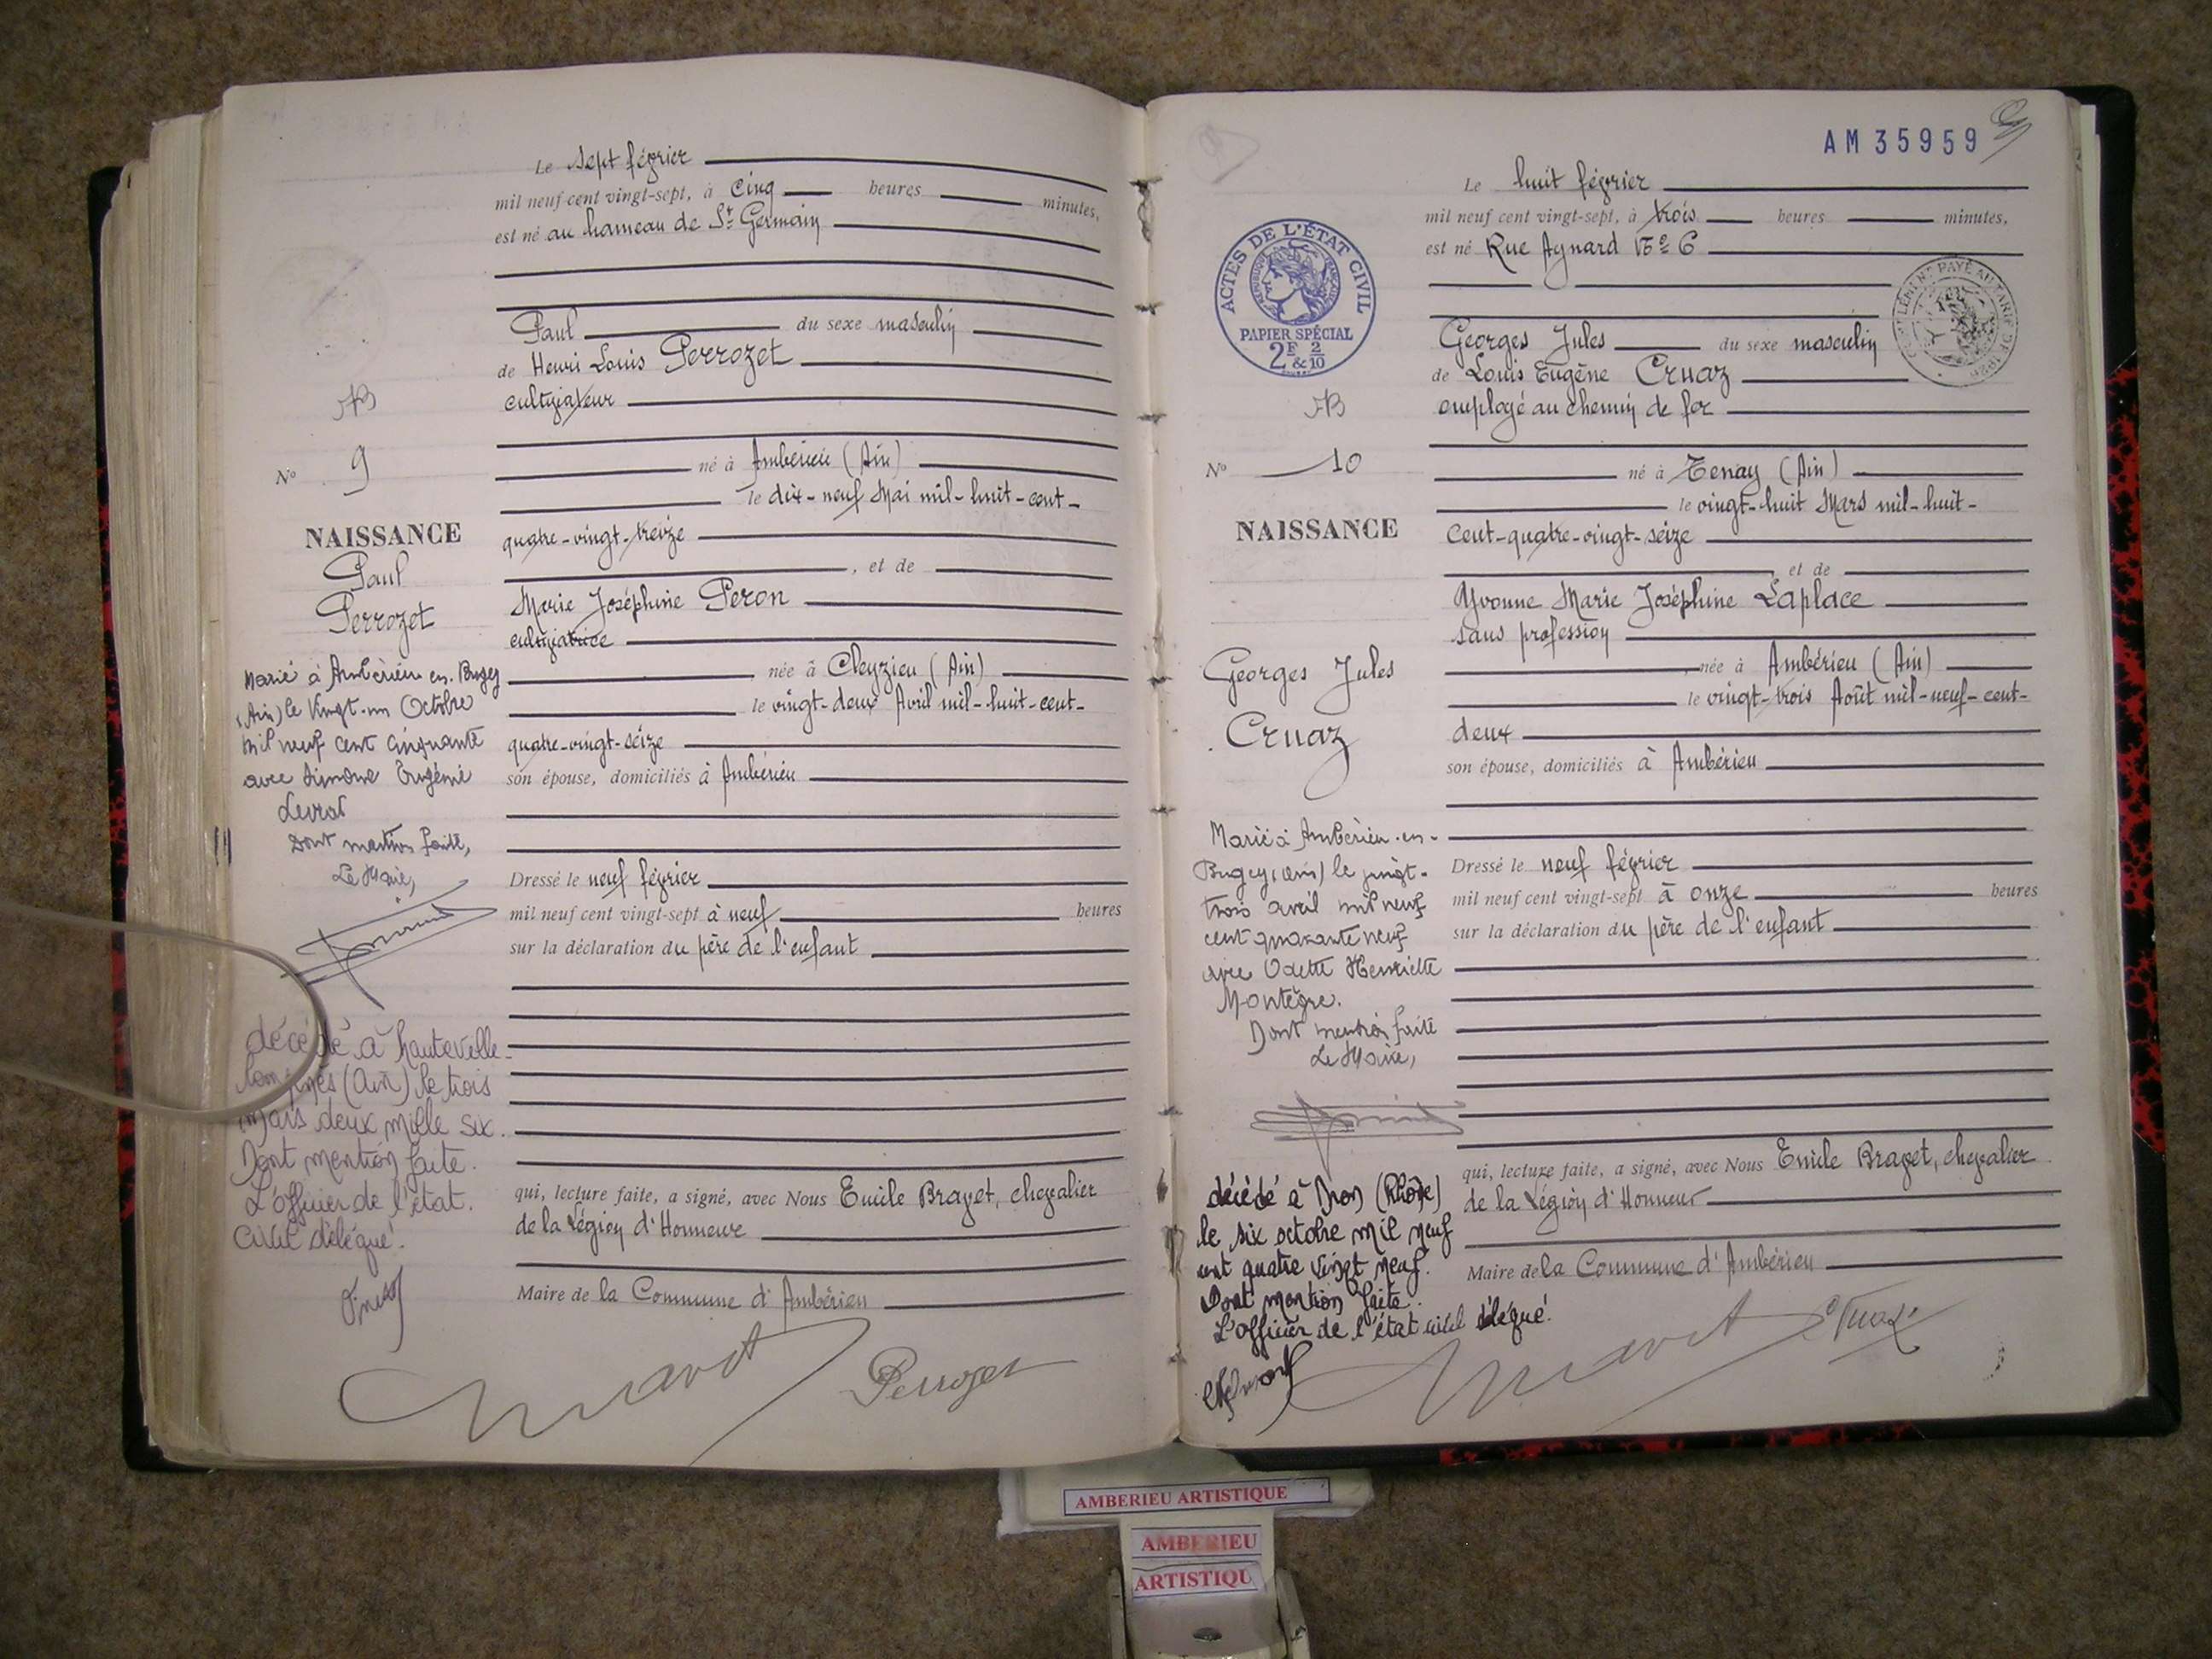 Le sept février
mil neuf cent vingt-sept, à cinq heures minutes,
est né au hameau de St Germain
Paul du sexe masculin
de Henri Louis Perrozet
cultivateur
né à Ambérieu (Ain)
le dix-neuf Mai mil-huit-cent-
quatre-vingt-treize
, et de
Marie Joséphine Peron
cultivatrice
née à Cleyzieu (Ain)
le vingt-deux Avril mil-huit-cent-
quatre-vingt-seize
son épouse, domiciliés à Ambérieu
Dressé le neuf février
mil neuf cent vingt-sept à neuf heures
sur la déclaration du père de l'enfant
qui, lecture faite, a signé, avec Nous Emile Bravet, chevalier
de la Légion d'Honneur
Maire de la Commune d'Ambérieu
Perrozet
AB
No 9
NAISSANCE
Paul
Perrozet
Marié à Ambérieu en Bugey
(Ain) le Vingt-un Octobre
mil neuf cent cinquante
avec Simone Eugénie
Levrat
Dont mention faite,
Le Maire,
décédé à hauteville-
lompnès (Ain) le trois
mars deux mille six.
Dont mention faite.
L'officier de l'état.
Civil délégué.
AM 35959
Le huit février
mil neuf cent vingt-sept, à trois heures minutes,
est né Rue Aynard No 6
Georges Jules du sexe masculin
de Louis Eugène Cruaz
employé au chemin de fer
né à Tenay (Ain)
le vingt-huit Mars mil-huit-
cent-quatre-vingt-seize
et de
Yvonne Marie Joséphine Laplace
sans profession
née à Ambérieu (Ain)
le vingt-trois Août mil-neuf-cent-
deux
son épouse, domiciliés à Ambérieu
Dressé le neuf février
mil neuf cent vingt-sept à onze heures
sur la déclaration du père de l'enfant
qui, lecture faite, a signé, avec Nous Emile Bravet, chevalier
de la Légion d'Honneur
Maire de la Commune d'Ambérieu
Cruaz
ACTES DE L'ÉTAT CIVIL
RÉPUBLIQUE FRANÇAISE
PAPIER SPÉCIAL
2F & 2/10
AB
No 10
NAISSANCE
Georges Jules
Cruaz
Marié à Ambérieu-en-
Bugey (Ain) le vingt-
trois avril mil neuf
cent quarante neuf
avec Odette Henriette
Montègre.
Dont mention faite
Le Maire,
décédé à Bron (Rhône)
le six octobre mil neuf
cent quatre vingt neuf.
Dont mention faite.
L'officier de l'état civil délégué.
AMBERIEU ARTISTIQUE
AMBERIEU
ARTISTIQU